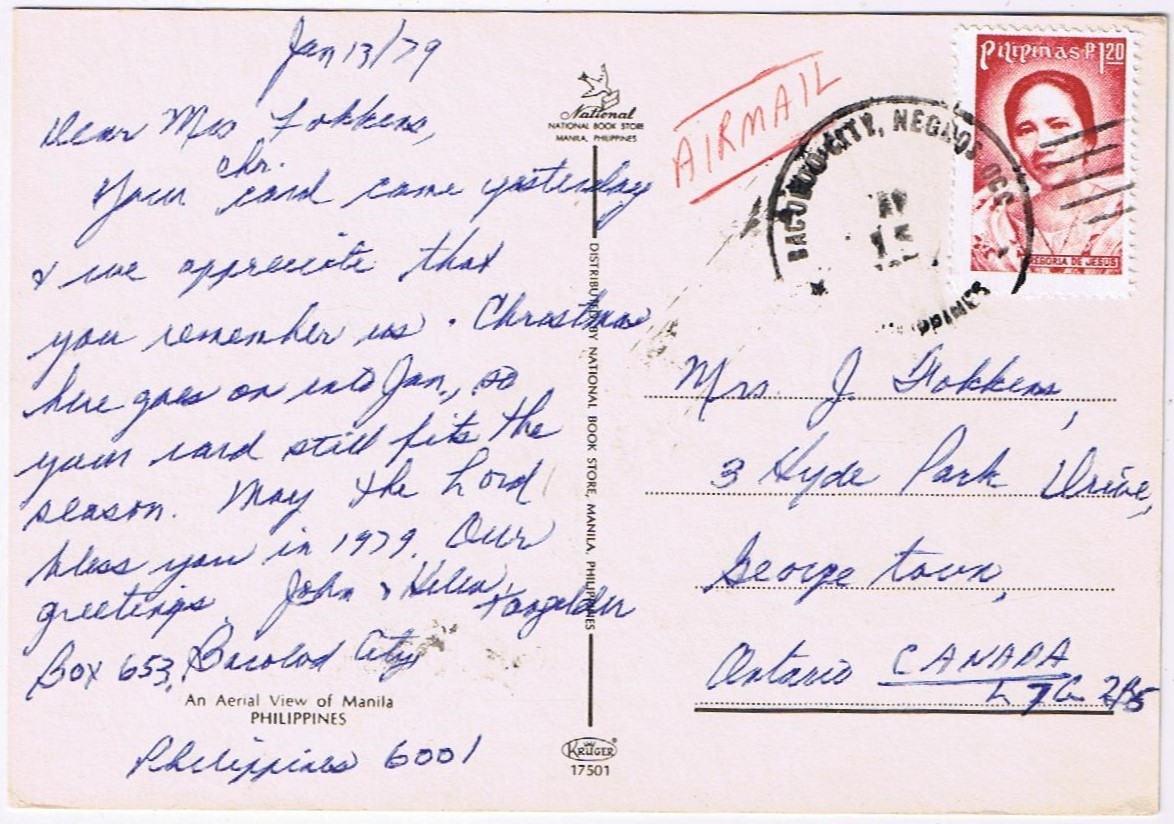 Jan 13/79
Dear Mrs Fokkens,
chr.
Your card came yesterday
& we appreciate that
you remember us. Christmas
here goes on into Jan., so
your card still fits the
season. May the Lord
bless you in 1979. Our
greetings John & Helen
Vangelder
Box 653, Bacolod City
An Aerial View of Manila
PHILIPPINES
Philippines 6001
National
NATIONAL BOOK STORE
MANILA, PHILIPPINES
DISTRIBUTED BY NATIONAL BOOK STORE, MANILA, PHILIPPINES
KRUGER
17501
AIRMAIL
BACOLOD CITY, NEGROS OCC.
PHILIPPINES
Pilipinas P1.20
GREGORIA DE JESUS
Mrs. J. Fokkens,
3 Hyde Park Drive,
Georgetown,
Ontario CANADA
L7G 2B5